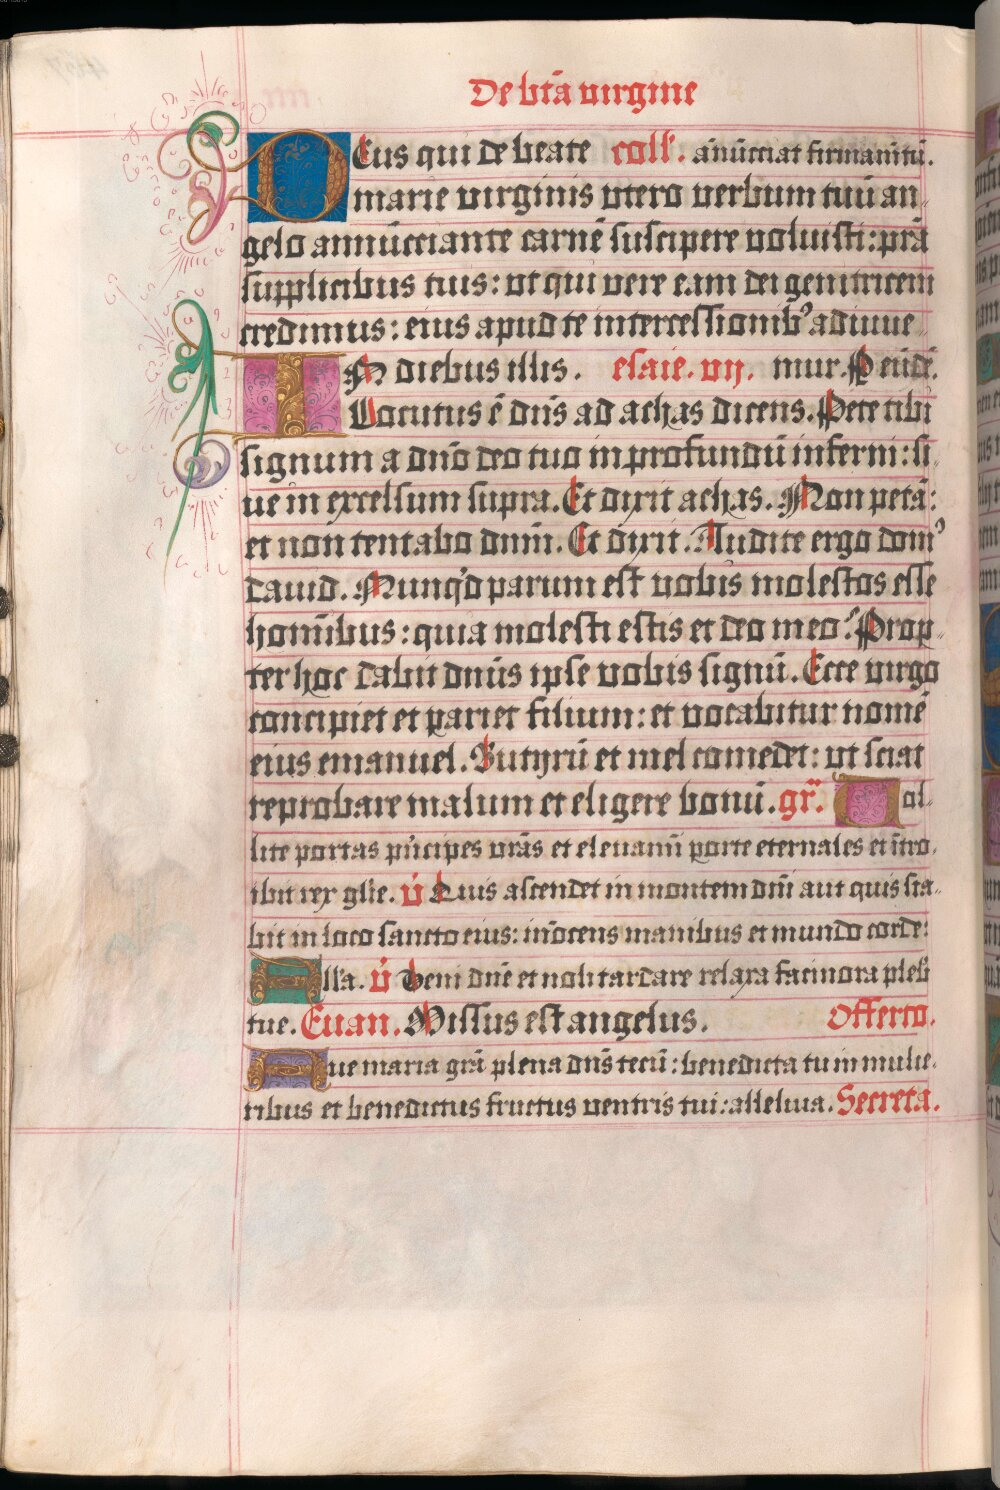 De btā virgine
DEus qui de beate coll'. ānūcciat firmamītū.
marie virginis vtero verbum tuū an-
gelo annūcciante carnē suscipere voluisti: prā
supplicibus tuis: vt qui vere eam dei genitricem
credimus: eius apud te intercessionib' adiuue-
IN diebus illis. esaie. vij. mur. P eūdē.
Locutus ē dn̄s ad achas dicens. Pete tibi
signum a dn̄o deo tuo in profundū inferni: si-
ue in excelsum supra. Et dixit achas. Non petā:
et non tentabo dnm̄. Et dixit. Audite ergo dom'
dauid. Nunq'd parum est vobis molestos esse
homībus: quia molesti estis et deo meo? Prop-
ter hoc dabit dn̄us ipse vobis signū. Ecce virgo
concipiet et pariet filium: et vocabitur nomē
eius emanuel. Butyrū et mel comedet: vt sciat
reprobare malum et eligere bonū. gr̄. Tol-
lite portas pn̄cipes vrās et eleuamī porte eternales et ītro-
ibit rex glīe. v̄ Quis ascendet in montem dnī aut quis sta-
bit in loco sancto eius: īnocens manibus et mundo corde:
All'a. v̄ Veni dnē et noli tardare relaxa facinora plebī
tue. Euan. Missus est angelus. Offerto.
Aue maria grā plena dn̄s tecū: benedicta tu in mulie-
ribus et benedictus fructus ventris tui: alleluia. Secreta.